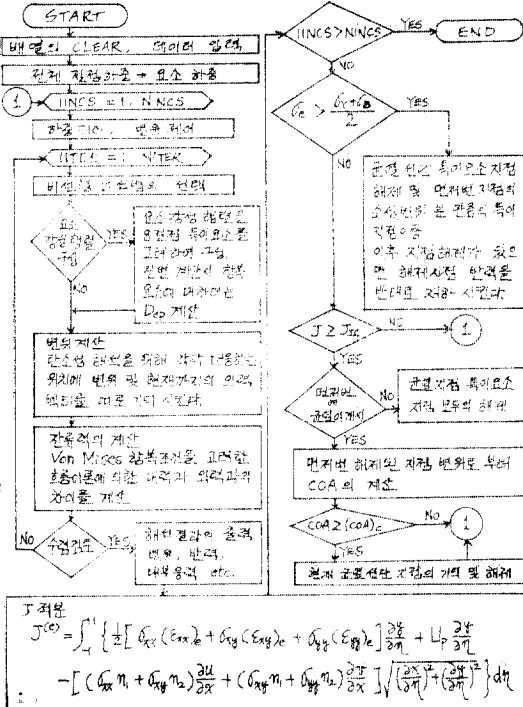 START
배열의 CLEAR, 데이터 입력
전체 절점하중 → 요소 하중
1
IINCS = 1, NINCS
하중제어, 변위 제어
IITER = 1, NITER
비선형 알고리즘의 선택
요소
강성행렬
구성
YES
NO
요소 강성 행렬을
고려하여 구성
전번 계산시 항복
요소에 대하여는
Dep 계산
변위 계산
탄소성 해석을 위해 각각 대응하는
위치에 변위 및 현재까지의 외력
벡터를 따로 기억 시킨다.
잔류력의 계산
Von Mises 항복조건을 고려한
흐름이론에 의한 내력과 외력과의
차이를 계산
NO
수렴검토
YES
해석결과의 출력
변위, 반력,
내부응력 etc.
IINCS>NINCS
YES
END
NO
YES
NO
균열 선단 특이요소 절점
해제 및 먼저번 절점의
소성변위 분 만큼의 특이
절점이동
이후 절점해제가 있으
면 해제절점 반력을
반대로 재하 시킨다.
NO
1
YES
먼저번
에
균열이 개시
NO
균열 절점 특이요소
절점 모두의 해제
YES
먼저번 해제된 절점 변위로 부터
COA의 계산
COA≥(COA)c
NO
1
YES
현재 균열선단 절점의 기억 및 해제
J 적분
J^(e) = ∫_{-1}^{+1} { 1/2 [ σxx(εxx)e + σxy(εxy)e + σyy(εyy)e ] ∂y/∂η + Up ∂y/∂η
- [ (σxx n1 + σxy n2) ∂u/∂x + (σxy n1 + σyy n2) ∂v/∂x ] √((∂x/∂η)² + (∂y/∂η)²) } dη